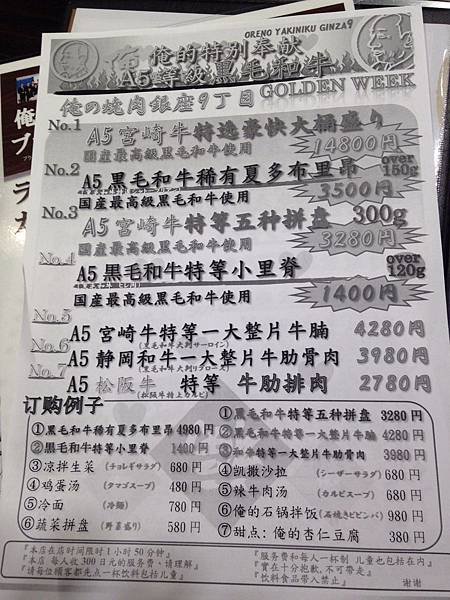 ORENO YAKINIKU GINZA9
俺的特别奉献
A5等級黒毛和牛
俺の焼肉銀座9丁目 GOLDEN WEEK
No.1
A5宮崎牛特选豪快大桶盛り
国産最高級黒毛和牛使用
14800円
No.2
A5黒毛和牛稀有夏多布里昂
over 150g
国産最高級黒毛和牛使用
3500円
No.3
A5宮崎牛特等五种拼盘 300g
国産最高級黒毛和牛使用
3280円
No.4
A5黒毛和牛特等小里脊
over 120g
国産最高級黒毛和牛使用
1400円
No.5
A5宮崎牛特等一大整片牛腩 4280円
No.6
(黒毛和牛大判サーロイン)
A5静岡和牛一大整片牛肋骨肉 3980円
No.7
(黒毛和牛大判リブロース)
A5松阪牛 特等 牛肋排肉 2780円
(松阪牛特上カルビ)
订购例子
①黒毛和牛稀有夏多布里昂 4980円
②黒毛和牛特等小里脊 1400円
③凉拌生菜 (チョレギサラダ) 680円
④鸡蛋汤 (タマゴスープ) 480円
⑤冷面 (冷麺) 780円
⑥蔬菜拼盘 (野菜盛り) 580円
①黒毛和牛特等五种拼盘 3280円
②黒毛和牛特等一大整片牛腩 4280円
③和牛特等一大整片牛肋骨肉 3980円
④凯撒沙拉 (シーザーサラダ) 680円
⑤辣牛肉汤 (カルビスープ) 680円
⑥俺的石锅拌饭 (石焼きビビンバ) 980円
⑦甜点: 俺的杏仁豆腐 380円
『本店在店时间限时1小时50分钟』
『本店 每人收300日元的服务费、请理解』
『请每位顧客都先点一杯饮料包括儿童』
『服务费和每人一杯制 儿童也包括在内』
『实在十分抱歉,不可带走』
『饮料食品带入禁止』 谢谢